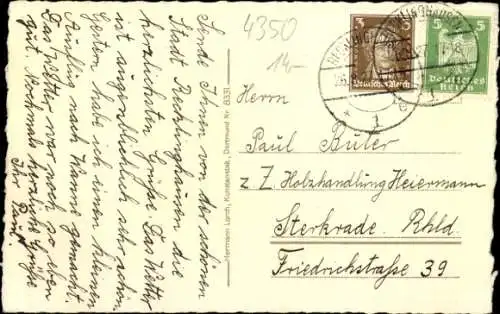 Sende Ihnen von der schönen
Stadt Recklinghausen die
herzlichsten Grüße. Das Wetter
ist augenblicklich sehr schön.
Gestern habe ich einen kleinen
Ausflug nach Hamme gemacht.
Das Wetter war noch so eben
gut. Nochmals herzliche Grüße
Ihr Paul.
Hermann Lorch, Kunstanstalt, Dortmund Nr. 8331
4350
14.–
3 3
Deutsches Reich
5 5
Deutsches
Reich
Herrn
Paul Büler
z. Z. Holzhandlung Heiermann
Sterkrade. Rhld.
Friedrichstraße 39